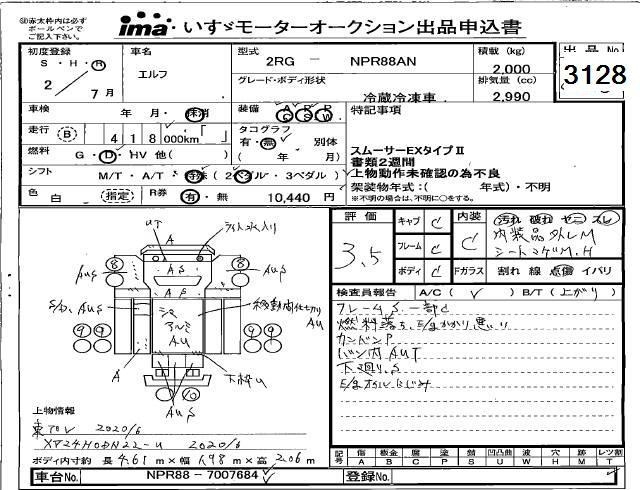 ㊟赤太枠内は必ず
ボールペンで
ご記入下さい。
ima いすゞモーターオークション出品申込書
初度登録
S・H・R
2年 7月
車名
エルフ
型式
2RG － NPR88AN
グレード・ボディ形状
冷蔵冷凍車
積載 (kg)
2,000
排気量 (cc)
2,990
出品No.
3128
車検 年 月・抹消
装備 A C P S P W
特記事項
走行 B 418 000km
タコグラフ
有・無 別体
( 年 月)
燃料 G・D・HV 他( )
シフト M/T・A/T・特殊(2ペダル・3ペダル)
色 白 (指定) R券 有・無 10,440 円
スムーサーEXタイプⅡ
書類2週間
上物動作未確認の為不良
架装物年式:( 年式)・不明
※不明の場合は、不明に○をする。
評価
3.5
キャブ C
フレーム C
ボディ C
内装 C
汚れ 破れ ヤニ スレ
内装品外レM
シートコゲM.H
Fガラス 割れ 線 点傷 イバリ
検査員報告 A/C( ✓ ) B/T(上がり)
フレームS.一部C
カンバンP
バン内AUT
下廻リS
E/gオイルにじみ
UT
A
AS
AUS
8
8
AUS
S/D, AUS
アルミ
AU
AU
9 9
9 9
A
下枠U
10
AUS
上物情報
東プレ 2020/6
XV24HODN22-U 2020/6
ボディ内寸約 長 4.61 m×幅 1.98 m×高 2.06 m
記号 傷 A 板金 B 腐 C 塗 P 錆 S 凹凸曲 U 波 W 穴 H ミ M レツ割 T
車台No. NPR88 － 7007684
登録No.